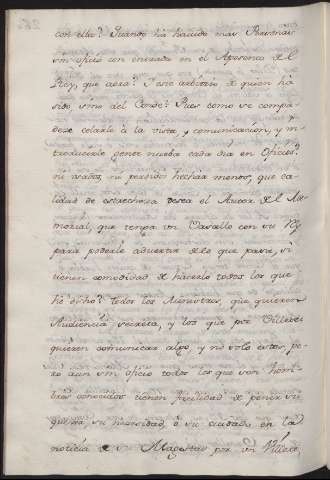 con ella? Quando há havido mas Personas
sin oficio con entrada en el Aposento de el
Rey, que aora? I este arbitrio de quien há
sido sino del Conde? Pues como se compa-
deze celarle á la vista, y comunicación, y in-
troducirle gente nueba cada dia en Oficios?
ni usados, ni pudo hechar menos, que ca-
lidad de estrecheza desea el Autor de el Me-
morial, que tenga un Cavallo con su Rey
para poderle advertir de lo que pasa, si
tienen comodidad de hacerlo todos los que
hé dicho? todos los Ministros, que quieren
Audiencia secreta, y los que por Villetes
quieren comunicar algo, y nó solo estos pe-
ró aun sin oficio todos los que son hom-
bres conocidos tienen facilidad de poner su
quexa, su necesidad, ó su cuidado en la
noticia de su Magestad por un Villete